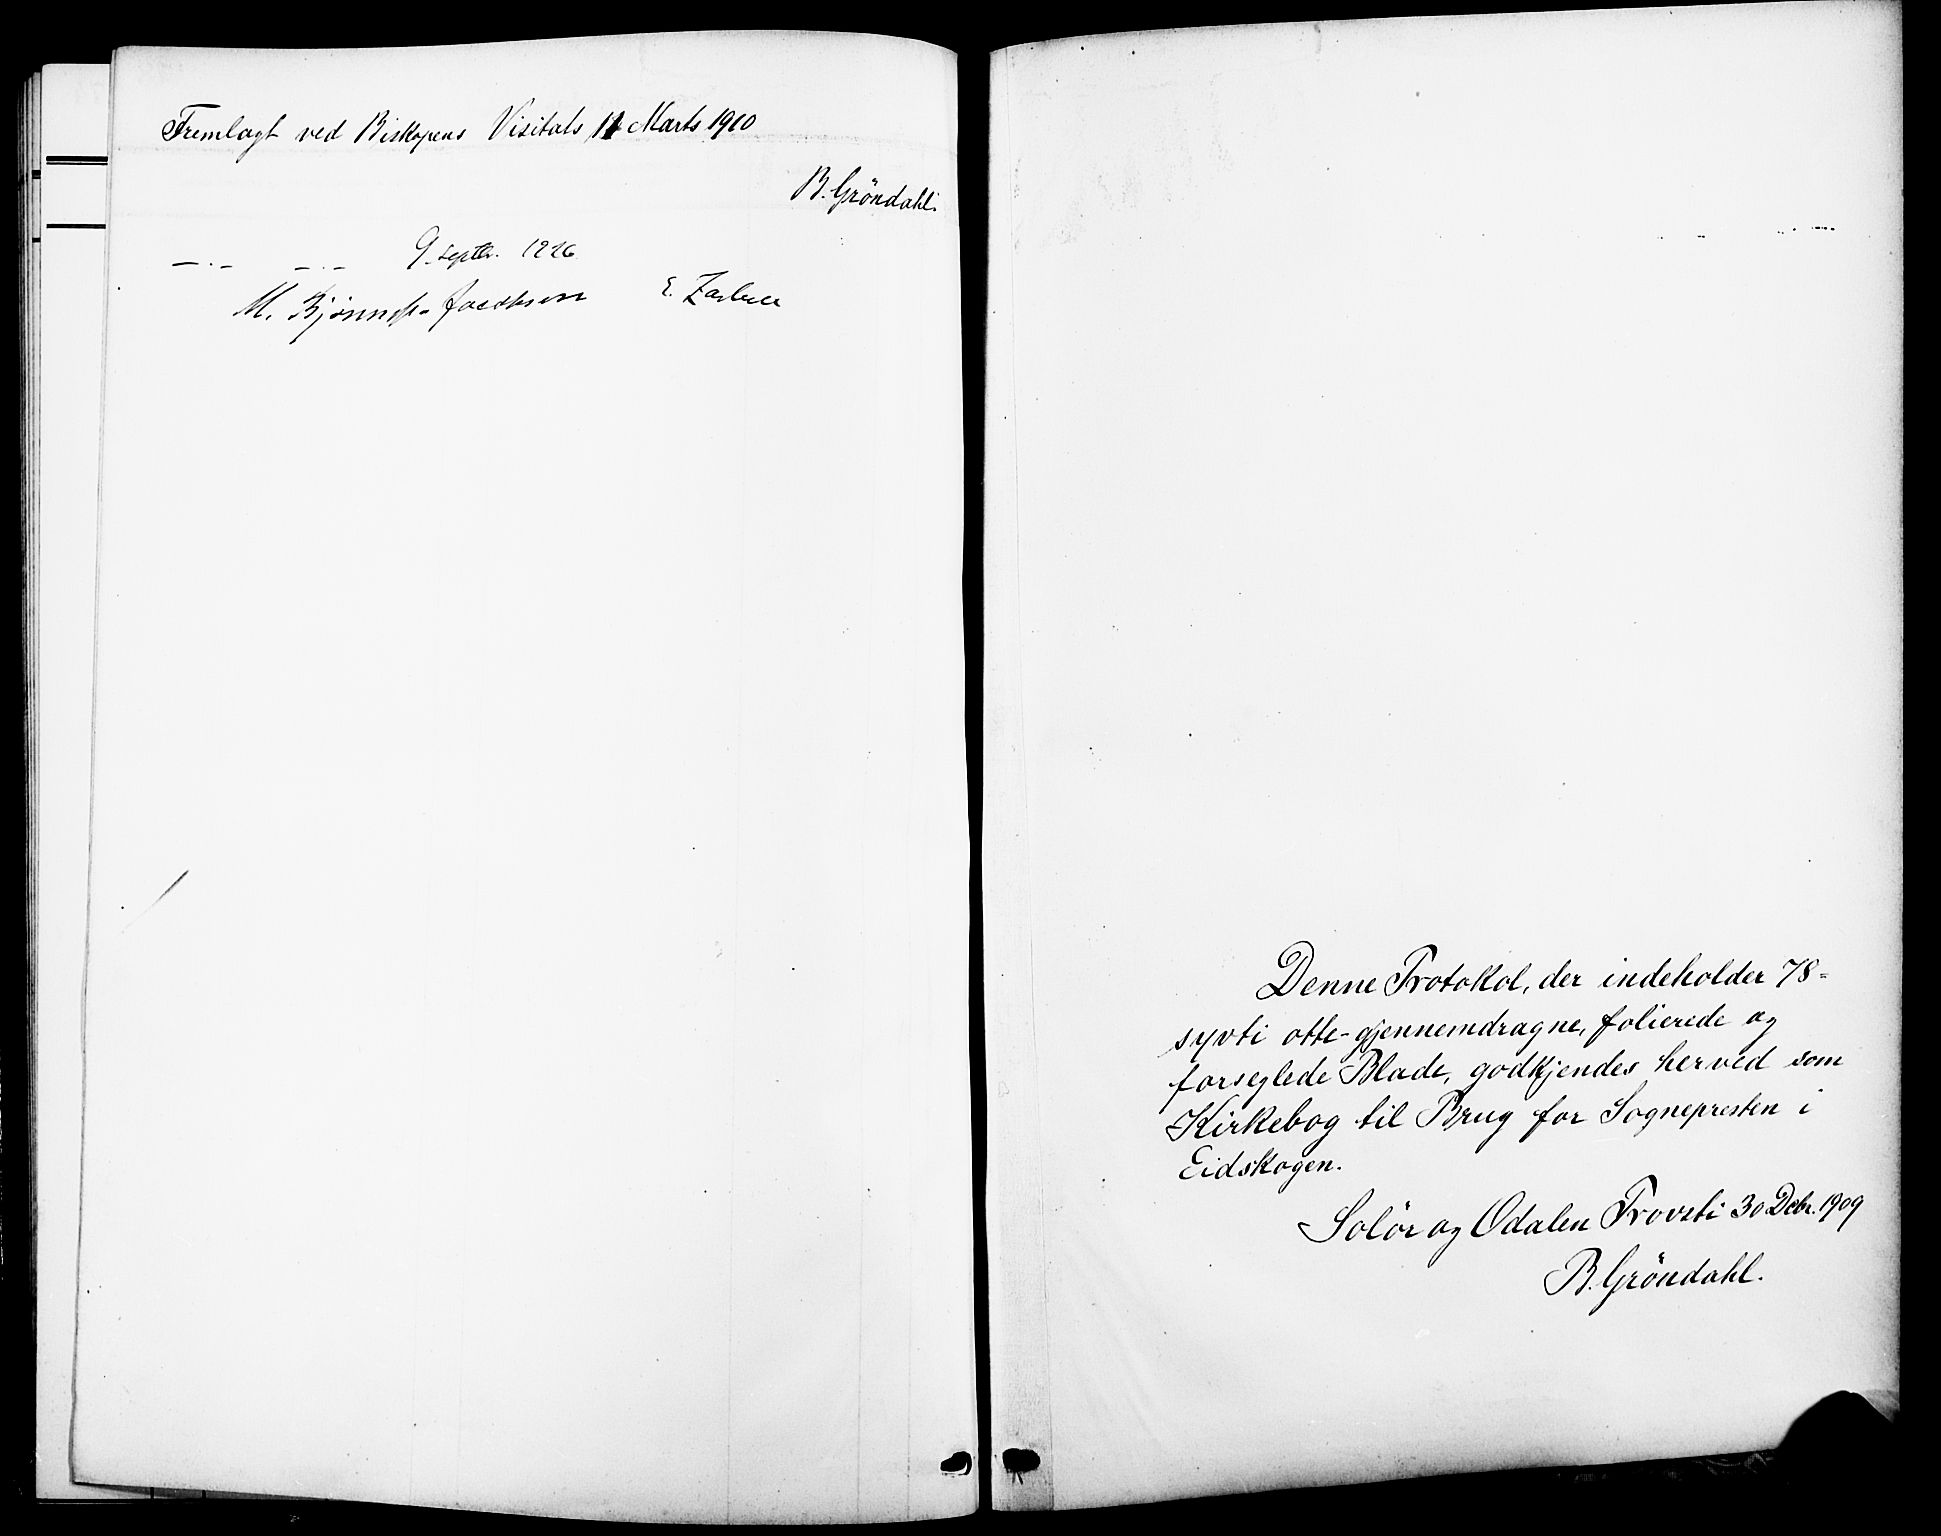 Fremlagt ved Biskopens Visitats 11 Marts 1910
B. Gröndahl.
— . — — . — 9. septbr. 1926
M. Bjønnes-Jacobsen E.
Denne Protokol, der indeholder 78-
syvti otte-gjennemdragne, folierede og
forseglede Blade, godkjendes herved som
Kirkebog til Brug for Sognepresten i
Eidskogen.
Solör og Odalen Provsti 30 Debr. 1909
B. Gröndahl.